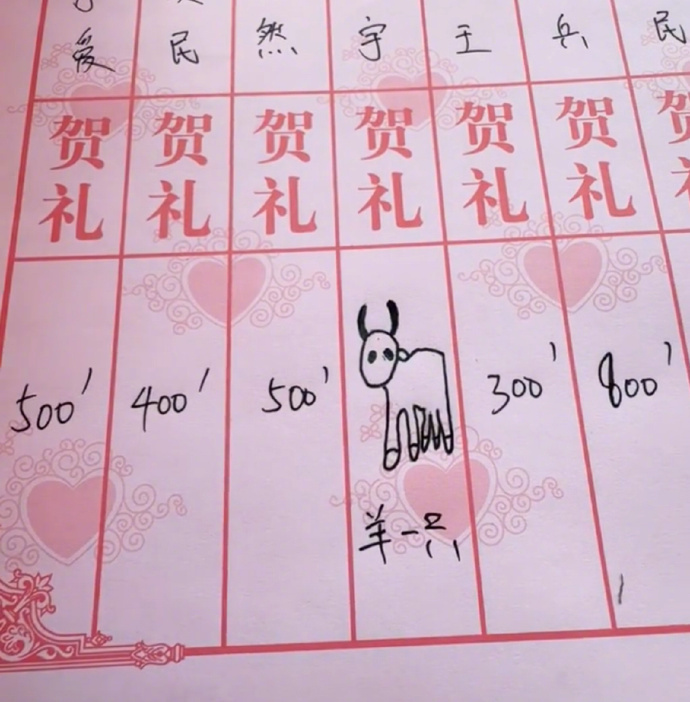 爱 民 然 宇 王 兵 民
贺 贺 贺 贺 贺 贺 贺
礼 礼 礼 礼 礼 礼
500' 400' 500' 300' 800'
羊一只